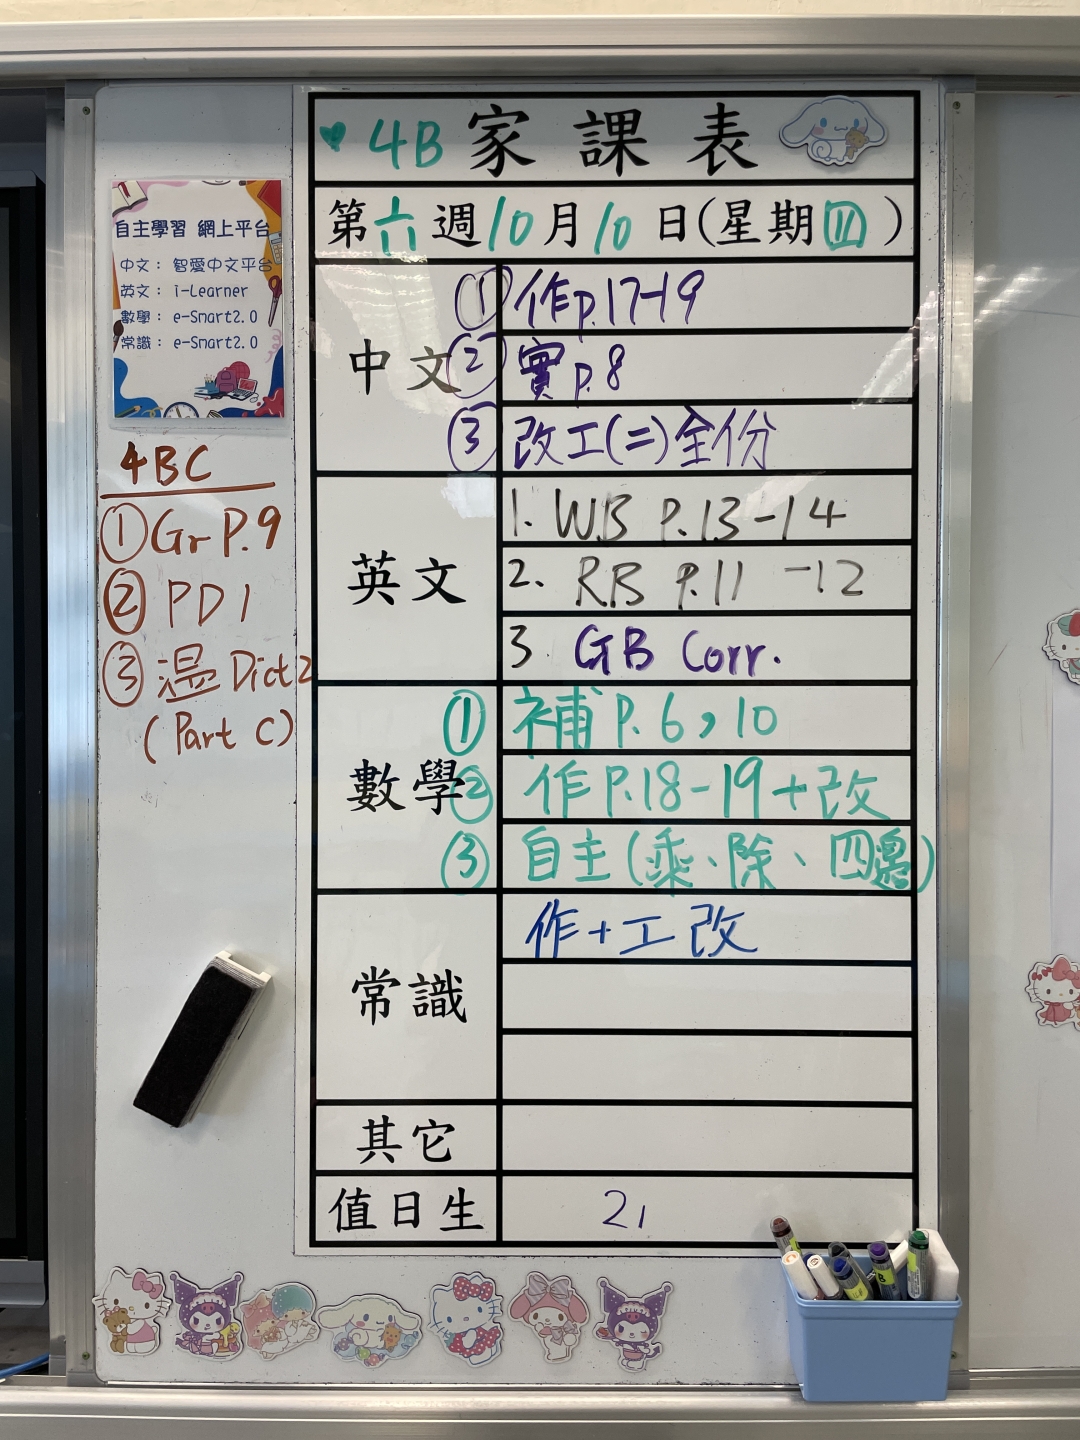 ♥ 4B 家課表
第六週10月10日(星期四)
自主學習 網上平台
中文： 智愛中文平台
英文： i-Learner
數學： e-Smart2.0
常識： e-Smart2.0
4BC
① Gr P.9
② PD 1
③ 溫 Dict 2
(Part C)
中文
① 作p.17-19
② 實p.8
③ 改工(二)全份
英文
1. WB P.13-14
2. RB P.11-12
3. GB Corr.
數學
① 補 P.6,10
② 作P.18-19+改
③ 自主(乘、除、四邊)
常識
作+工改
其它
值日生
21